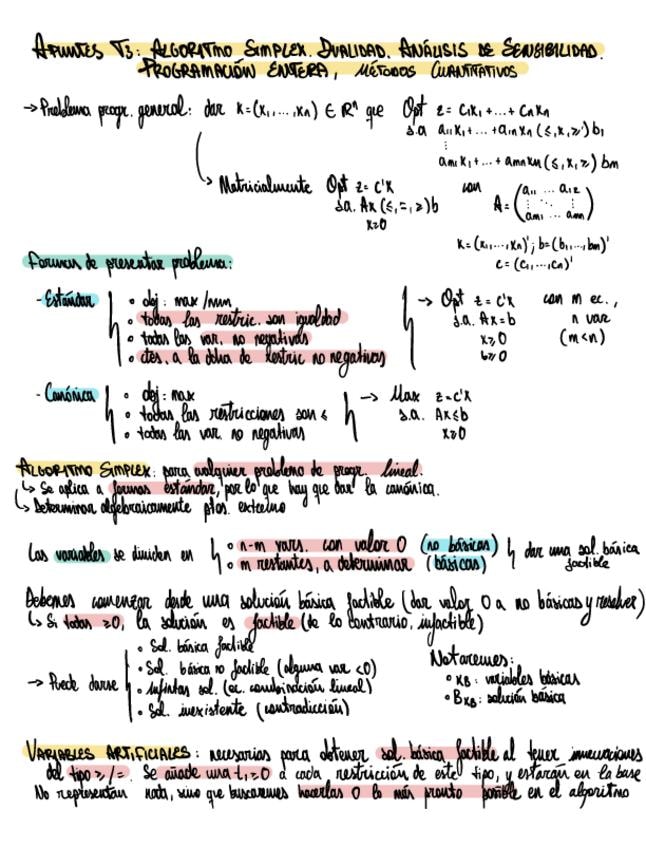 APUNTES T3: ALGORITMO SIMPLEX. DUALIDAD. ANÁLISIS DE SENSIBILIDAD.
PROGRAMACIÓN ENTERA, MÉTODOS CUANTITATIVOS
→ Problema progr. general: dar x=(x₁,...,xₙ) ∈ ℝⁿ que Opt z = c₁x₁+...+cₙxₙ
s.a a₁₁x₁+...+a₁ₙxₙ (≤,=,≥) b₁
⋮
aₘ₁x₁+...+aₘₙxₙ (≤,=,≥) bₘ
↳ Matricialmente Opt z=c'x
s.a. Ax (≤,=,≥) b
x≥0
con A = (a₁₁ ... a₁₂
⋮ ⋱ ⋮
aₘ₁ ... aₘₙ)
x=(x₁,...,xₙ)'; b=(b₁,...,bₘ)'
c=(c₁,...,cₙ)'
Formas de presentar problema:
- Estándar
• obj: max/min
• todas las restric. son igualdad
• todas las var. no negativas
• ctes. a la dcha de restric no negativas
→ Opt z=c'x
s.a. Ax=b
x≥0
b≥0
con m ec.,
n var
(m<n)
- Canónica
• obj: max
• todas las restricciones son ≤
• todas las var. no negativas
→ Max z=c'x
s.a. Ax≤b
x≥0
ALGORITMO SIMPLEX: para cualquier problema de progr. lineal.
↳ Se aplica a formas estándar, por lo que hay que dar la canónica.
↳ Determinar algebraicamente ptos. extremo
Las variables se dividen en
• n-m vars. con valor 0 (no básicas)
• m restantes, a determinar (básicas)
dar una sol. básica
factible
Debemos comenzar desde una solución básica factible (dar valor 0 a no básicas y resolver)
↳ Si todas ≥0, la solución es factible (de lo contrario, infactible)
→ Puede darse
• Sol. básica factible
• Sol. básica no factible (alguna var <0)
• Infinitas sol. (ec. combinación lineal)
• Sol. inexistente (contradicción)
Notaremos:
• x_B: variables básicas
• B_{XB}: solución básica
VARIABLES ARTIFICIALES: necesarias para obtener sol. básica factible al tener inecuaciones
del tipo ≥/=. Se añade una t₁≥0 a cada restricción de este tipo, y estarán en la base
No representan nada, sino que buscaremos hacerlas 0 lo más pronto posible en el algoritmo